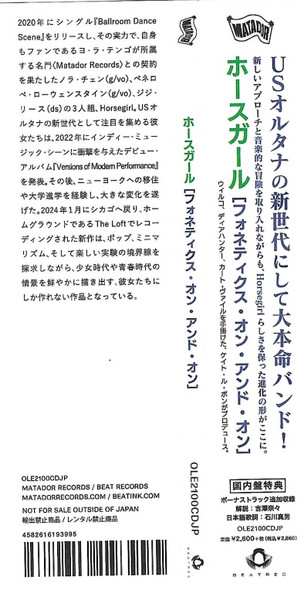 2020年にシングル『Ballroom Dance
Scene』をリリースし、その実力で、自身
もファンであるヨ・ラ・テンゴが所属
する名門〈Matador Records〉との契約
を果たしたノラ・チェン(g/vo)、ペネロ
ペ・ローウェンスタイン(g/vo)、ジジ・
リース(ds)の3人組、Horsegirl。USオ
ルタナの新世代として注目を集める彼
女たちは、2022年にインディー・ミュー
ジック・シーンに衝撃を与えたデビュー・
アルバム『Versions of Modern Performance』
を発表。その後、ニューヨークへの移住
や大学進学を経験し、大きな変化を遂
げた。2024年1月にシカゴへ戻り、ホー
ムグラウンドであるThe Loftでレコー
ディングされた新作は、ポップ、ミニマ
リズム、そして楽しい実験の境界線を
探求しながら、少女時代や青春時代の
情景を鮮やかに描き出す、彼女たちに
しか作れない作品となっている。
OLE2100CDJP
MATADOR RECORDS / BEAT RECORDS
MATADORRECORDS.COM / BEATINK.COM
NOT FOR SALE OUTSIDE OF JAPAN
輸出禁止商品 / レンタル禁止商品
4582616193995
MATADOR
ホースガール [フォネティクス・オン・アンド・オン]
OLE2100CDJP
BEATREC
MATADOR
USオルタナの新世代にして大本命バンド!
新しいアプローチと音楽的な冒険を取り入れながらも、Horsegirlらしさを保った進化の形がここに。
ホースガール [フォネティクス・オン・アンド・オン]
ウィルコ、ディアハンター、カート・ヴァイルを手掛けた、ケイト・ル・ボンがプロデュース。
OLE2100CDJP
国内盤特典
ボーナストラック追加収録
解説:吉澤奈々
日本語歌詞:石川真男
定価 ¥2,600+税 (税込 ¥2,860)
BEATREC